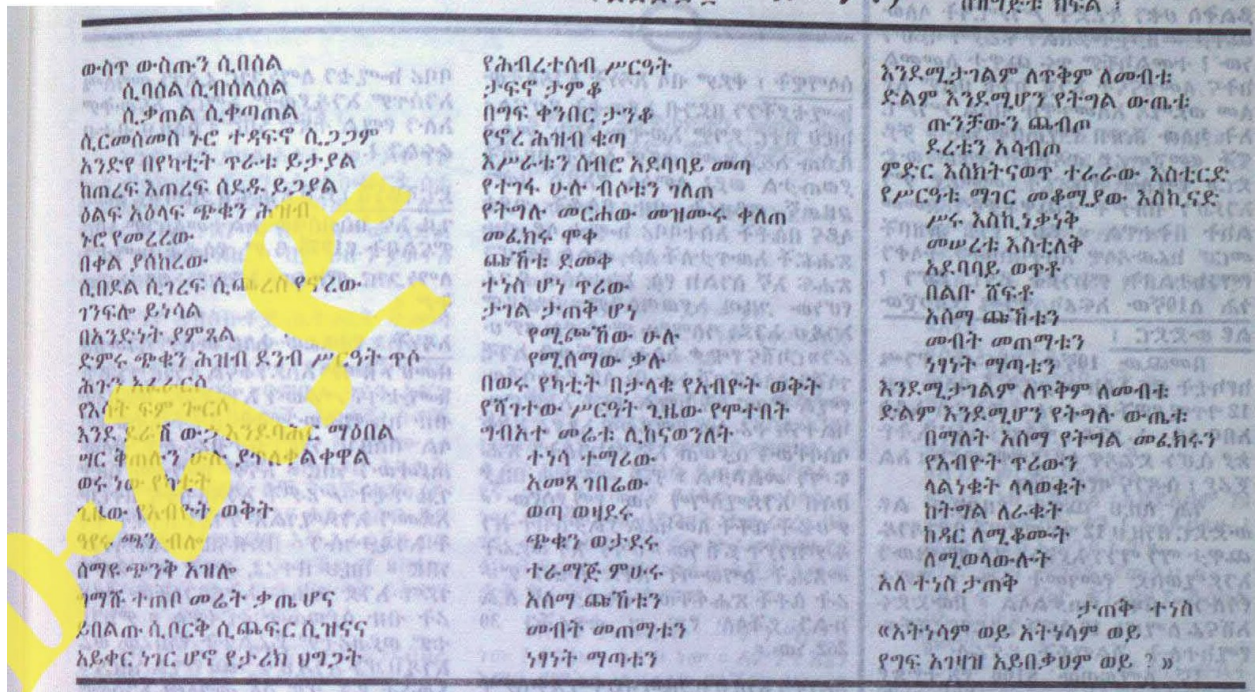 በዘማድቱ ክፍል ፤
ውስጥ ውስጡን ሲበሰል
ሲባሰል ሲብሰለሰል
ሲቃጠል ሲቀጣጠል
ሲርመሰመስ ኑሮ ተዳፍኖ ሲጋጋም
አንድየ በየካቲት ጥራቱ ይታያል
ከጠረፍ እጠረፍ ሰደዱ ይጋያል
ዕልፍ አዕላፍ ጭቁን ሕዝብ
ኑሮ የመረረው
በቀል ያሰከረው
ሲበደል ሲገረፍ ሲጨረስ የኖረው
ገንፍሎ ይነሳል
በአንድነት ያምጿል
ድምሩ ጭቁን ሕዝብ ደንብ ሥርዓት ጥሶ
ሕጉን አፈራርሶ
የእሳት ፍም ጐርሶ
እንደ ደራሽ ውኃ እንደባሕር ማዕበል
ሣር ቅጠሉን ሁሉ ያጥለቀልቀዋል
ወሩ ነው የካቲት
ጊዜው የአብዮት ወቅት
ዓየሩ ጫን ብሎ
ሰማዩ ጭንቅ አዝሎ
ጎማሹ ተጠቦ መሬት ቃጤ ሆና
ይበልጡ ሲቦርቅ ሲጨፍር ሲዝናና
አይቀር ነገር ሆኖ የታሪክ ህግጋት
የሕብረተሰብ ሥርዓት
ታፍኖ ታምቆ
በግፍ ቀንበር ታንቆ
የኖረ ሕዝብ ቁጣ
እሥራቱን ሰብሮ አደባባይ መጣ
የተገፋ ሁሉ ብሶቱን ገለጠ
የትግሉ መርሐው መዝሙሩ ቀለጠ
መፈክሩ ሞቀ
ጩኸቱ ደመቀ
ተነስ ሆነ ጥሪው
ታገል ታጠቅ ሆነ
የሚጮኸው ሁሉ
የሚሰማው ቃሉ
በወሩ የካቲት በታላቁ የአብዮት ወቅት
የሻገተው ሥርዓት ጊዜው የሞተበት
ግብአተ መሬቱ ሊከናወንለት
ተነሳ ተማሪው
አመጸ ገበሬው
ወጣ ወዛደሩ
ጭቁን ወታደሩ
ተራማጅ ምሁሩ
አሰማ ጩኸቱን
መብት መጠማቱን
ነፃነት ማጣቱን
እንደሚታገልም ለጥቅም ለመብቱ
ድልም እንደሚሆን የትግል ውጤቱ
ጡንቻውን ጨብጦ
ደረቱን አሳብጦ
ምድር እስክትናወጥ ተራራው እስቲርድ
የሥርዓቱ ማገር መቆሚያው እስኪናድ
ሥሩ እስኪነቃነቅ
መሠረቱ እስቲለቅ
አደባባይ ወጥቶ
በልቡ ሸፍቶ
አሰማ ጩኸቱን
መብት መጠማቱን
ነፃነት ማጣቱን
እንደሚታገልም ለጥቅም ለመብቱ
ድልም እንደሚሆን የትግሉ ውጤቱ
በማለት አሰማ የትግል መፈክሩን
የአብዮት ጥሪውን
ላልነቁት ላላወቁት
ከትግል ለራቁት
ከዳር ለሚቆሙት
ለሚወላውሉት
አለ ተነስ ታጠቅ
ታጠቅ ተነስ
«አትነሳም ወይ አትነሳም ወይ
የግፍ አገዛዝ አይበቃህም ወይ ? »